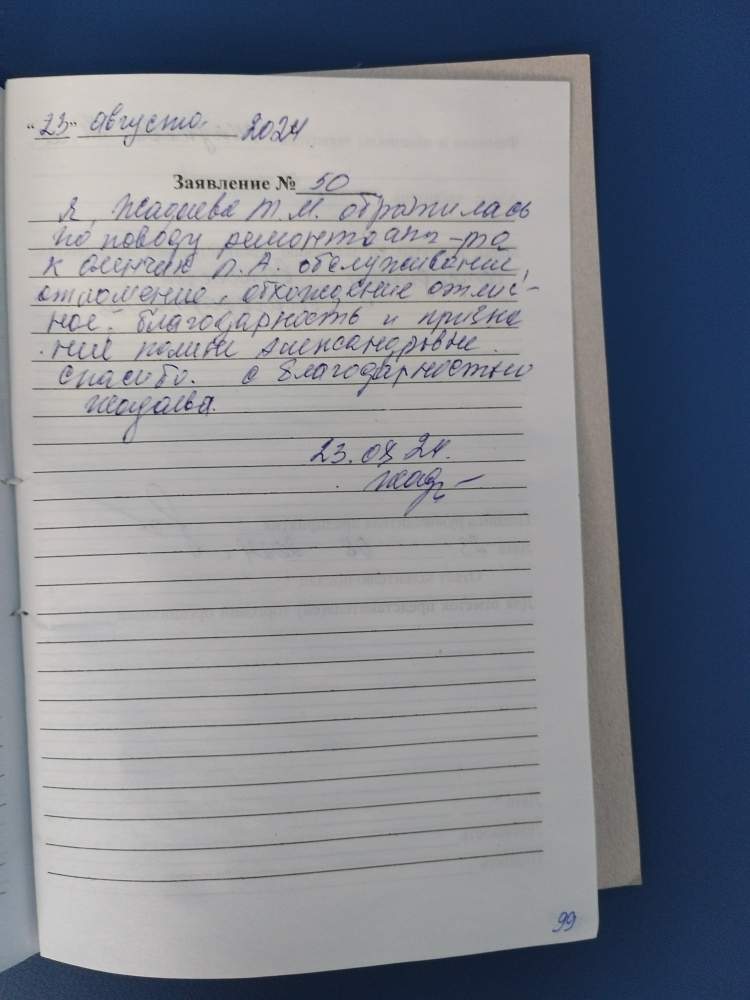 "23" августа 2024
Заявление № 50
Я, Жадаева Т.М. обратилась
по поводу ремонта апп-та
к Оленчик П.А. обслуживание,
отношение, обхождение отлич-
ное. благодарность и призна
ние Полине Александровне.
Спасибо. С благодарностью
Жадаева.
23.08.24.
Жад
99